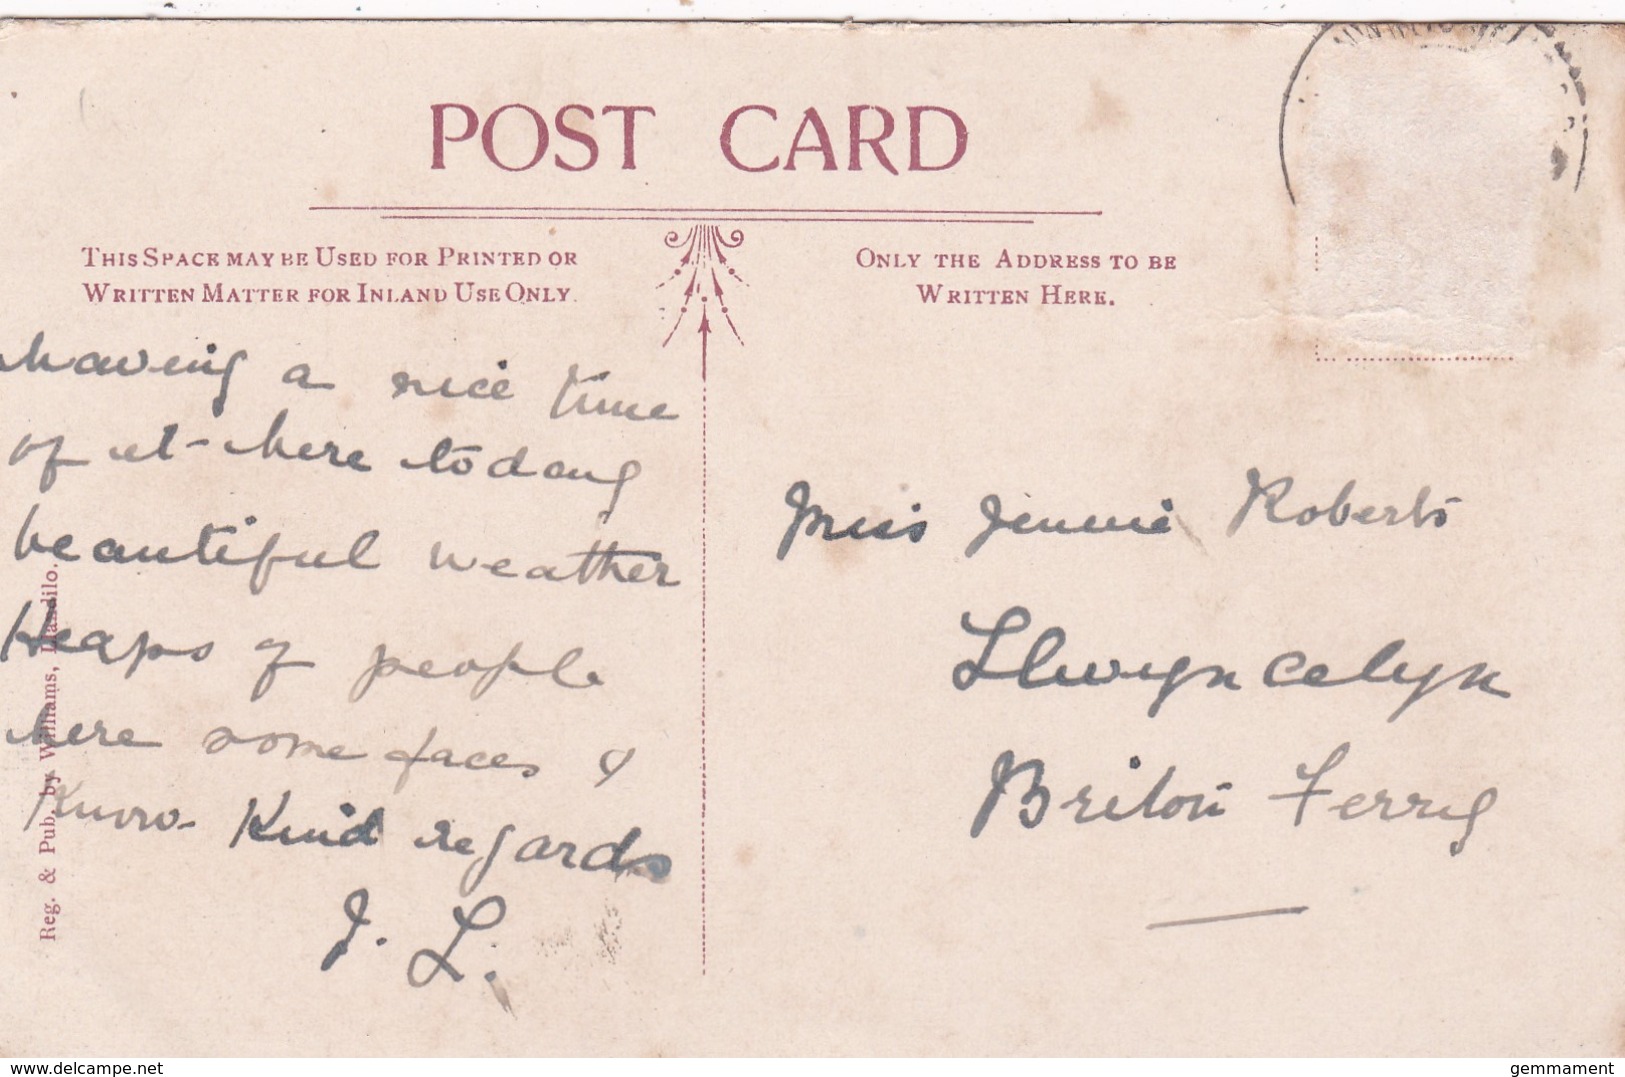 POST CARD
THIS SPACE MAY BE USED FOR PRINTED OR
WRITTEN MATTER FOR INLAND USE ONLY.
ONLY THE ADDRESS TO BE
WRITTEN HERE.
having a nice time
of it - here today
beautiful weather
Heaps of people
here some faces I
Know - Kind regards
J. L.
Miss Jennie Roberts
Llwyncelyn
Briton Ferry
Reg. & Pub. by Williams, Llandilo.
www.delcampe.net
gemmament